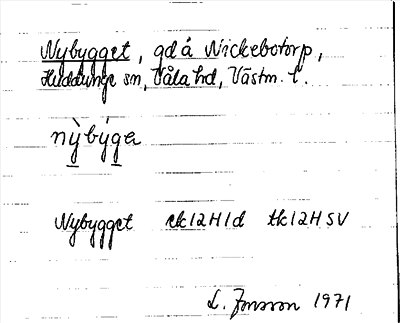 Nybygget, gd å Nickebotorp,
Huddunge sn, Våla hd, Västm. l.
nỳbýga
Nybygget ek12H1d tk12HSV
L. Jonsson 1971